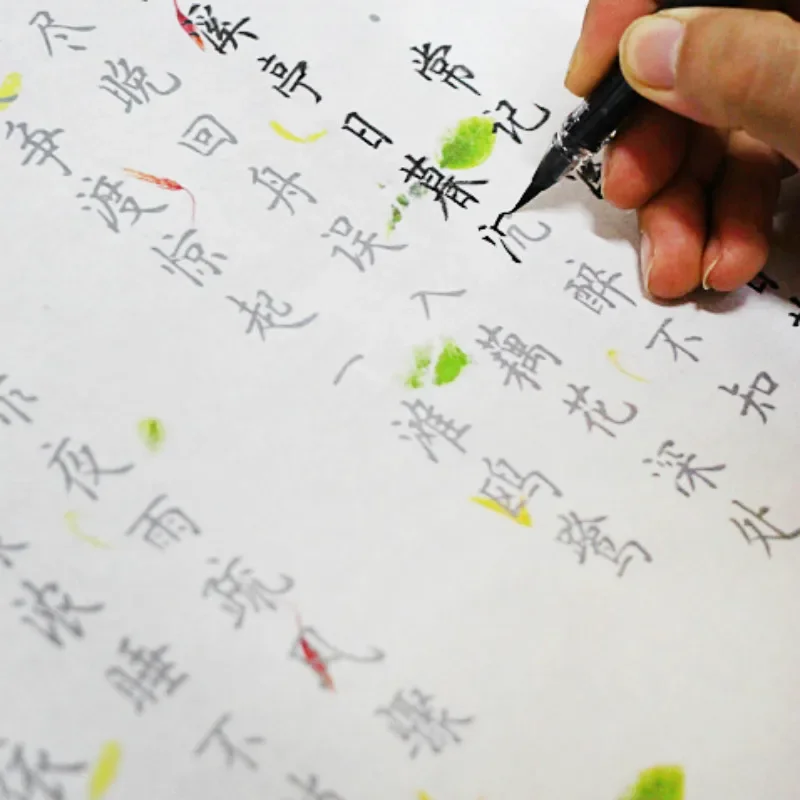 常记
溪亭日暮沉醉不知
尽晚回舟误入藕花深处
争渡惊起一滩鸥鹭
夜雨疏风骤
浓睡不
依